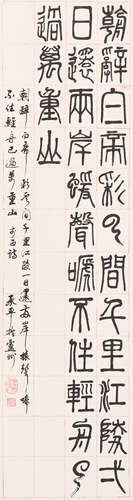 朝辭白帝彩雲間千里江陵一
日還兩岸猿聲啼不住輕舟
過萬重山
朝辭白帝彩雲間千里江陵一日還兩岸猿聲啼
不住輕舟已過萬重山